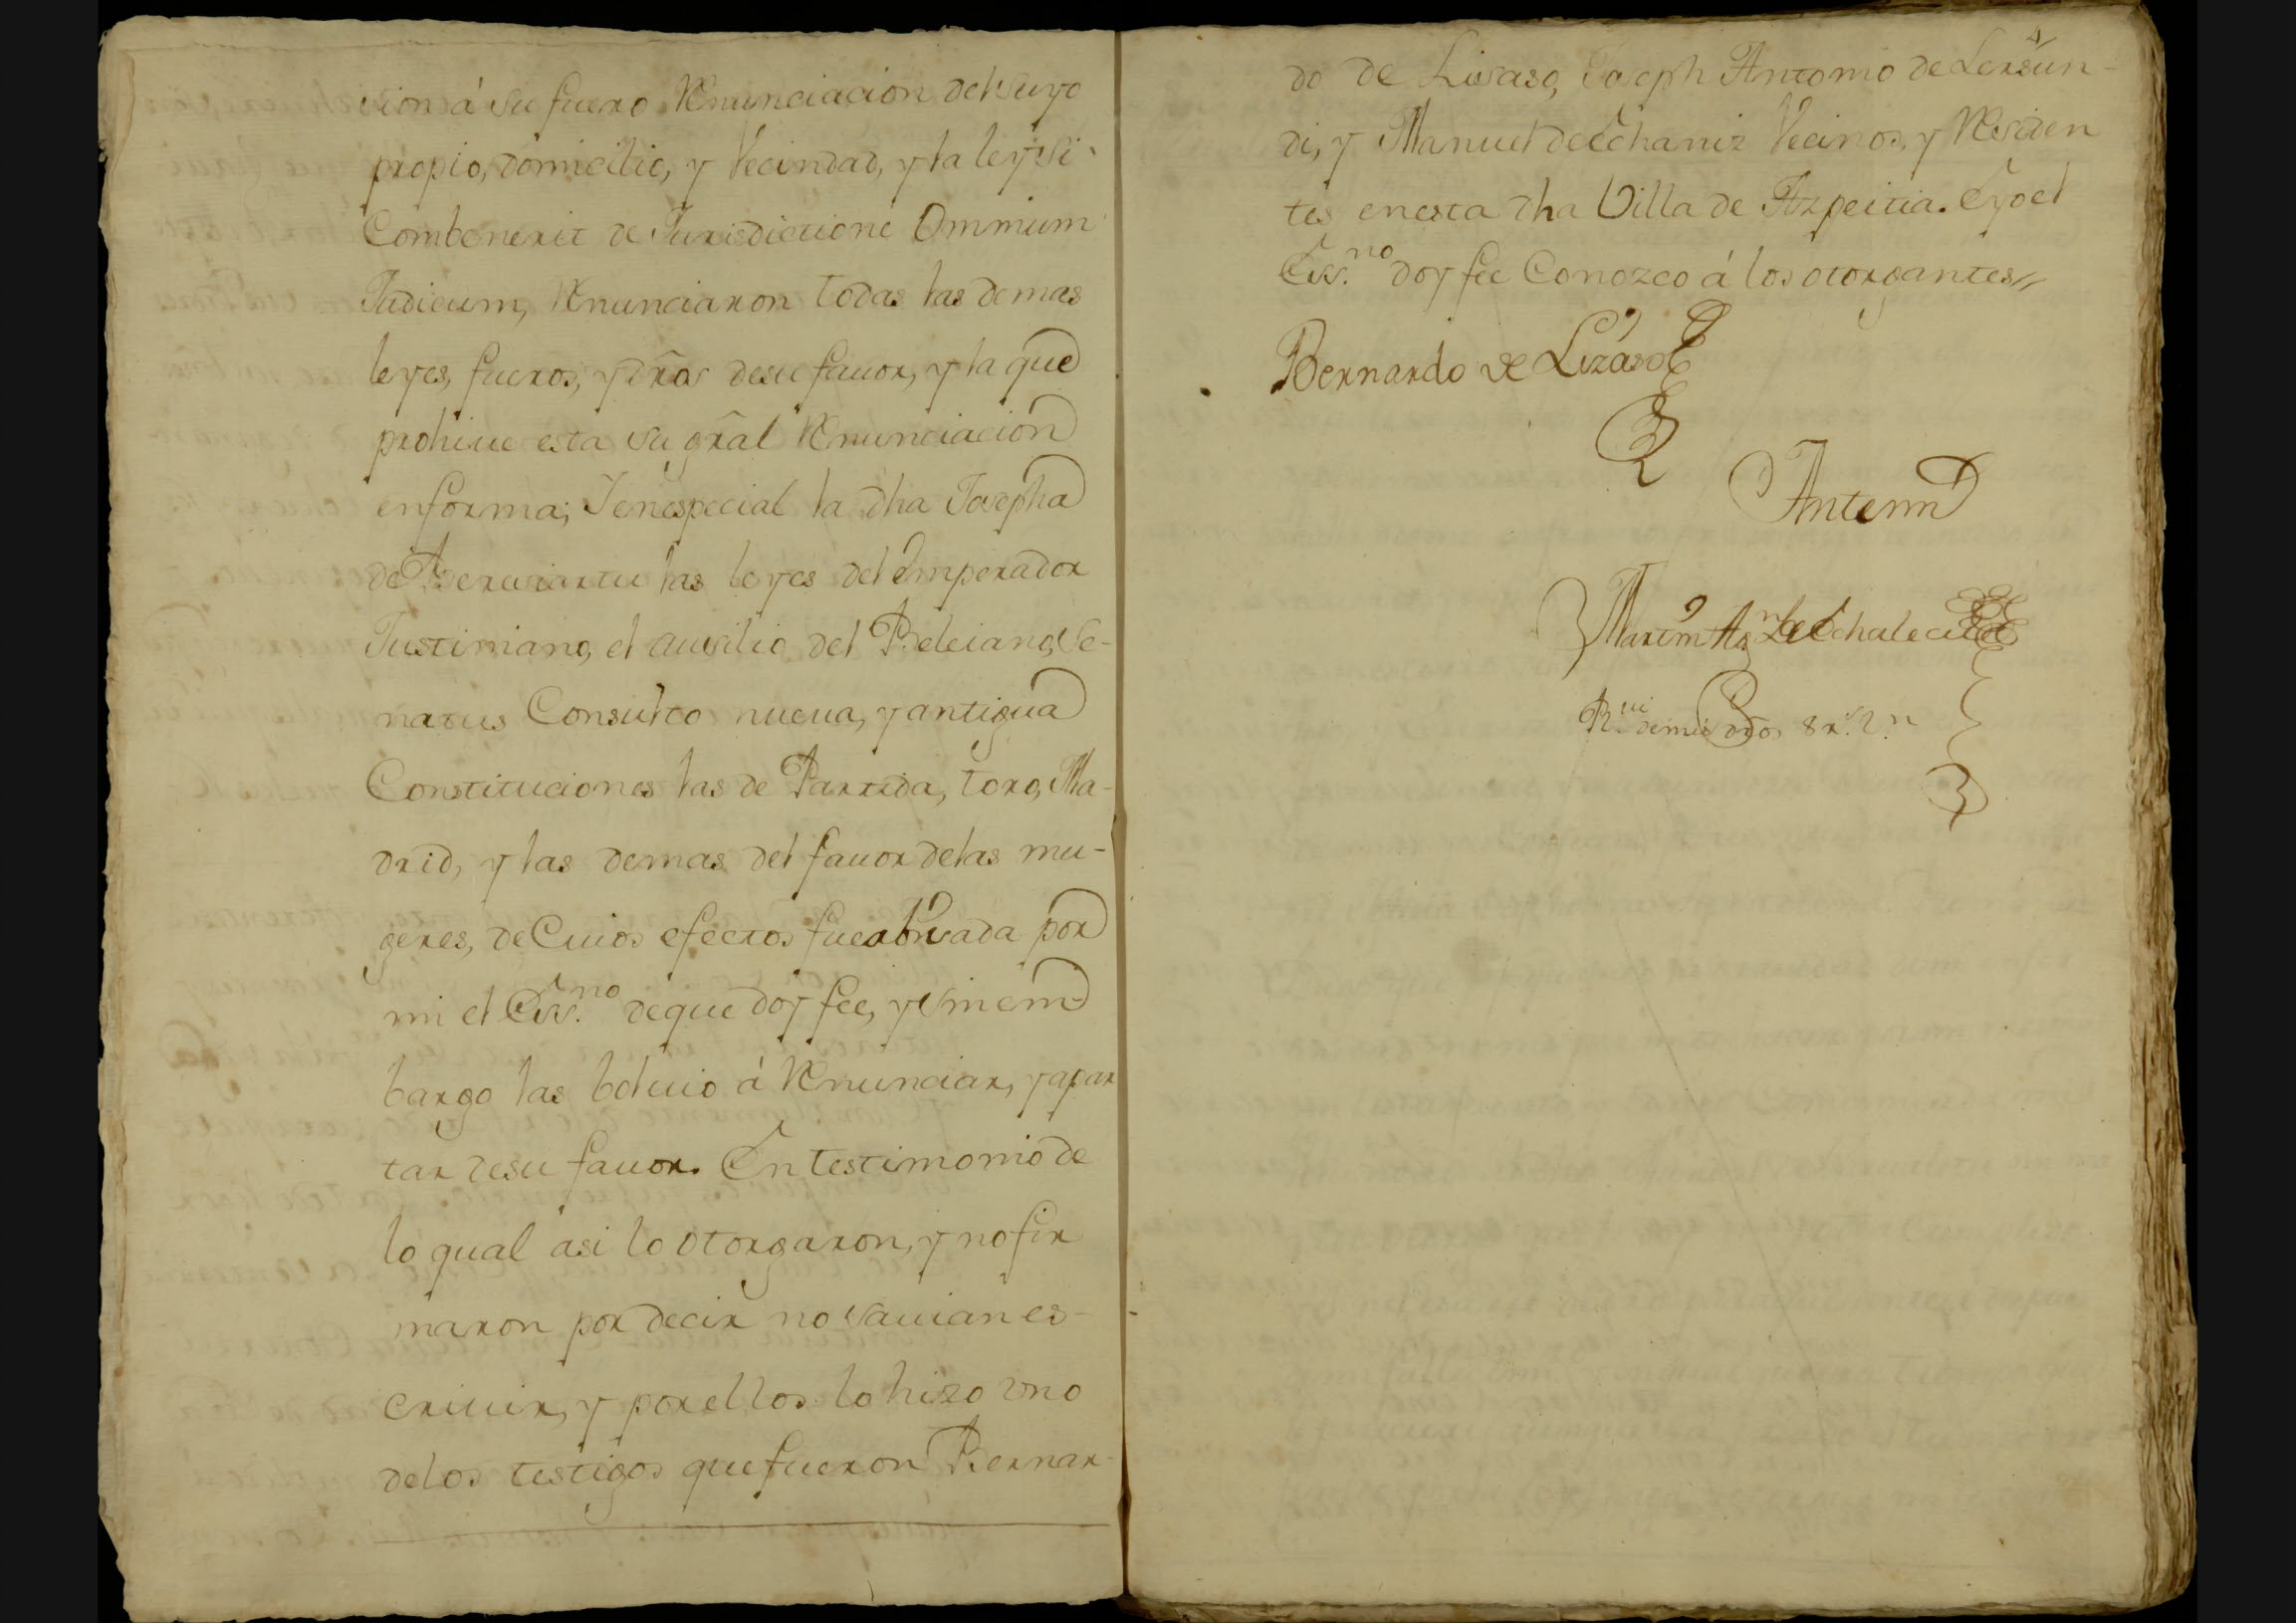 sion á su fuero Renunciacion del suyo
propio, domicilio, y Vecindad, y la ley Si
Combenerit de Jurisdictione Ommium
Judicum, Renunciaron todas las demas
leyes, fueros, y dr̃os de su fauor, y la que
prohiue esta su gr̃al Renunciacion
en forma; Y en especial la dha Josepha
de Aberuriartu las leyes del Emperador
Justiniano, el ausilio del Beleiano, Se-
natus Consulto nueua, y antigua
Constituciones las de Partida, toro, Ma-
drid, y las demas del fauor de las mu-
geres, de Cuios efectos fue abisada por
mi el Ess.no de que doy fee, y sin em-
bargo las boluio á Renunciar, y apar
tar de su fauor. En testimonio de
lo qual asi lo otorgaron, y no fir
maron por decir no sauian es-
criuir, y por ellos lo hizo vno
de los testigos que fueron Bernar-
do de Lisaso, Joseph Antonio de Lersun-
di, y Manuel de Echaniz Vecinos, y Residen
tes en esta dha Villa de Azpeitia. E yo el
Ess.no doy fee Conozco á los otorgantes//
Bernardo de Lizaso
Antemi
Martin Ag.n de Echalecu
R.ui de mis dros 8 r.s V.n